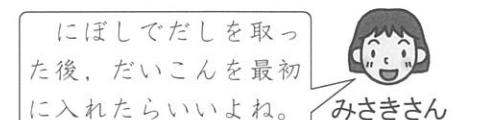 にぼしでだしを取っ
た後，だいこんを最初
に入れたらいいよね。
みさきさん